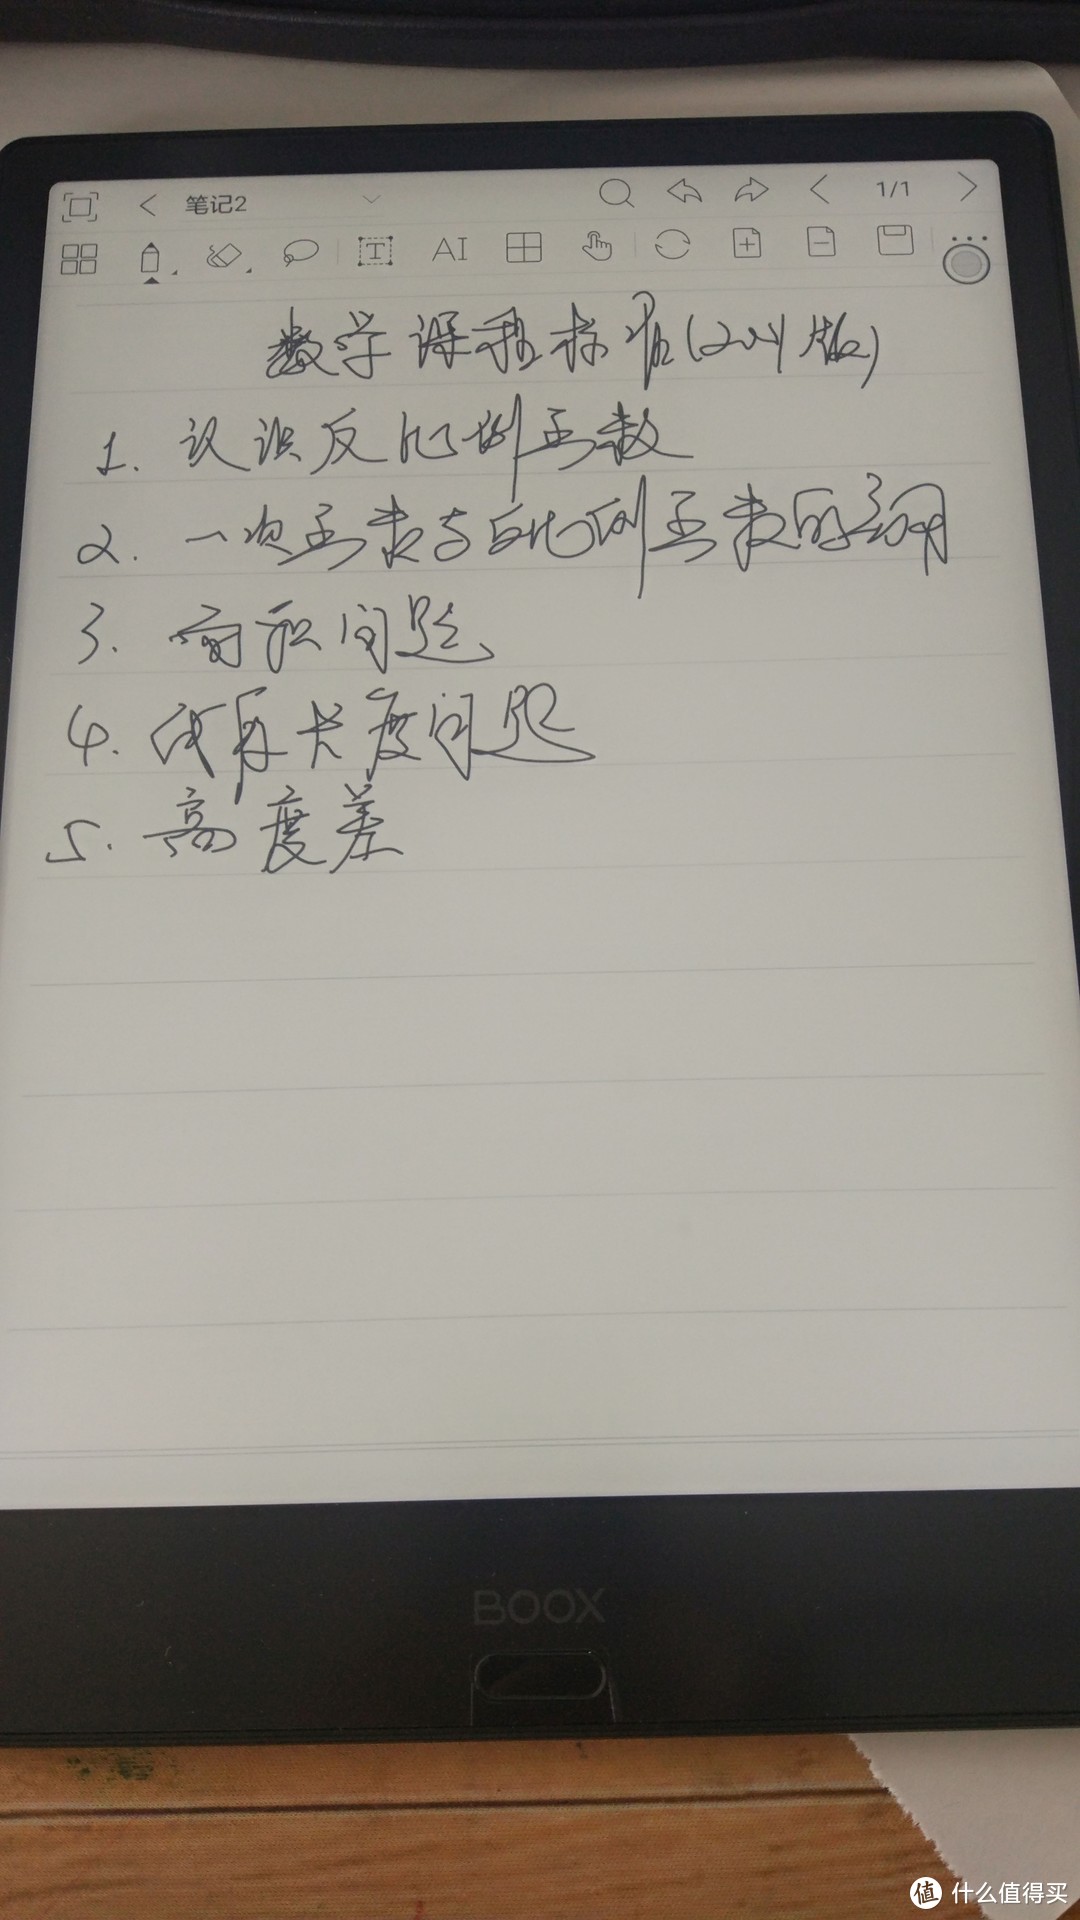 笔记2
1/1
AI
数学课程标准(2011版)
1. 认识反比例函数
2. 一次函数与反比例函数的
3. 面积问题
4. 线段长度问题
5. 高度差
BOOX
值 什么值得买